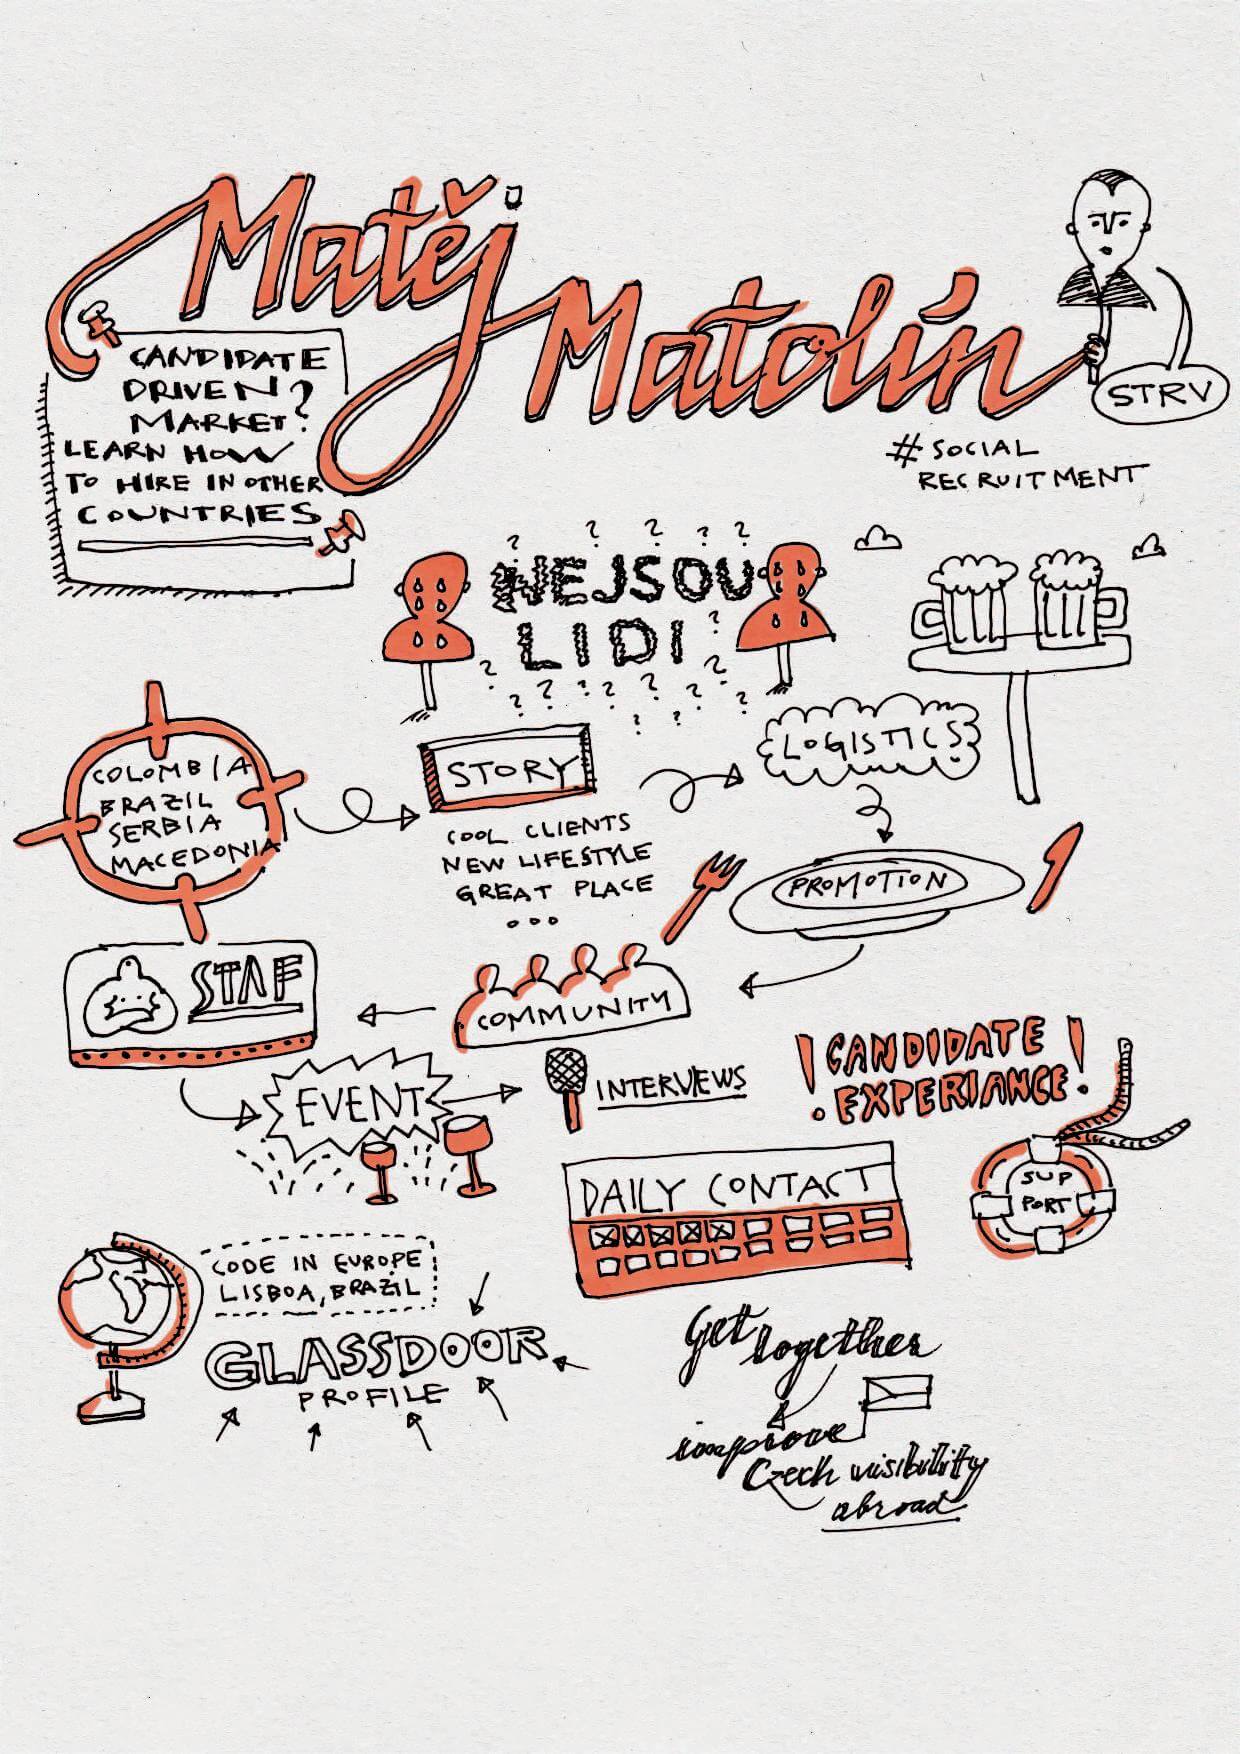 Matěj
Matolín
STRV
CANDIDATE
DRIVEN?
MARKET?
LEARN HOW
TO HIRE IN OTHER
COUNTRIES
# SOCIAL
RECRUITMENT
NEJSOU
LIDI
COLOMBIA
BRAZIL
SERBIA
MACEDONIA
STORY
COOL CLIENTS
NEW LIFESTYLE
GREAT PLACE
...
LOGISTICS
PROMOTION
COMMUNITY
STAF
EVENT
INTERVIEWS
! CANDIDATE !
EXPERIANCE
SUP
PORT
DAILY CONTACT
CODE IN EUROPE
LISBOA, BRAZIL
GLASSDOOR
PROFILE
Get together
improve
Czech visibility
abroad